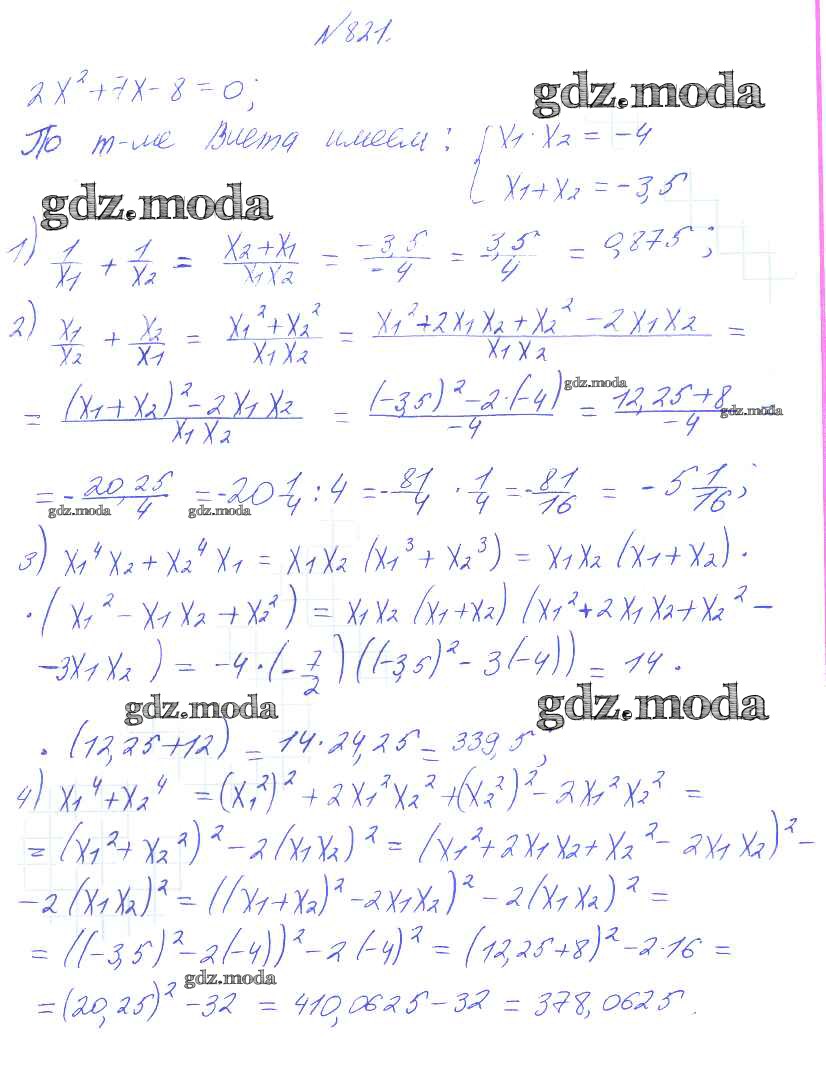 №821.
2x² + 7x - 8 = 0;
gdz.moda
По т-ме Виета имеем: { x₁ · x₂ = -4
x₁ + x₂ = -3,5
gdz.moda
1) 1/x₁ + 1/x₂ = (x₂ + x₁)/(x₁x₂) = (-3,5)/(-4) = 3,5/4 = 0,875;
2) x₁/x₂ + x₂/x₁ = (x₁² + x₂²)/(x₁x₂) = (x₁² + 2x₁x₂ + x₂² - 2x₁x₂)/(x₁x₂) =
= ((x₁ + x₂)² - 2x₁x₂)/(x₁x₂) = ((-3,5)² - 2·(-4))/(-4) = (12,25 + 8)/(-4) =
gdz.moda
gdz.moda
= - 20,25/4 = -20 1/4 : 4 = - 81/4 · 1/4 = - 81/16 = -5 1/16;
gdz.moda gdz.moda
3) x₁⁴x₂ + x₂⁴x₁ = x₁x₂(x₁³ + x₂³) = x₁x₂(x₁ + x₂) ·
· (x₁² - x₁x₂ + x₂²) = x₁x₂(x₁ + x₂)(x₁² + 2x₁x₂ + x₂² -
- 3x₁x₂) = -4 · (- 7/2)((-3,5)² - 3(-4)) = 14 ·
gdz.moda gdz.moda
· (12,25 + 12) = 14 · 24,25 = 339,5;
4) x₁⁴ + x₂⁴ = (x₁²)² + 2x₁²x₂² + (x₂²)² - 2x₁²x₂² =
= (x₁² + x₂²)² - 2(x₁x₂)² = (x₁² + 2x₁x₂ + x₂² - 2x₁x₂)² -
- 2(x₁x₂)² = ((x₁ + x₂)² - 2x₁x₂)² - 2(x₁x₂)² =
= ((-3,5)² - 2(-4))² - 2(-4)² = (12,25 + 8)² - 2·16 =
gdz.moda
= (20,25)² - 32 = 410,0625 - 32 = 378,0625.